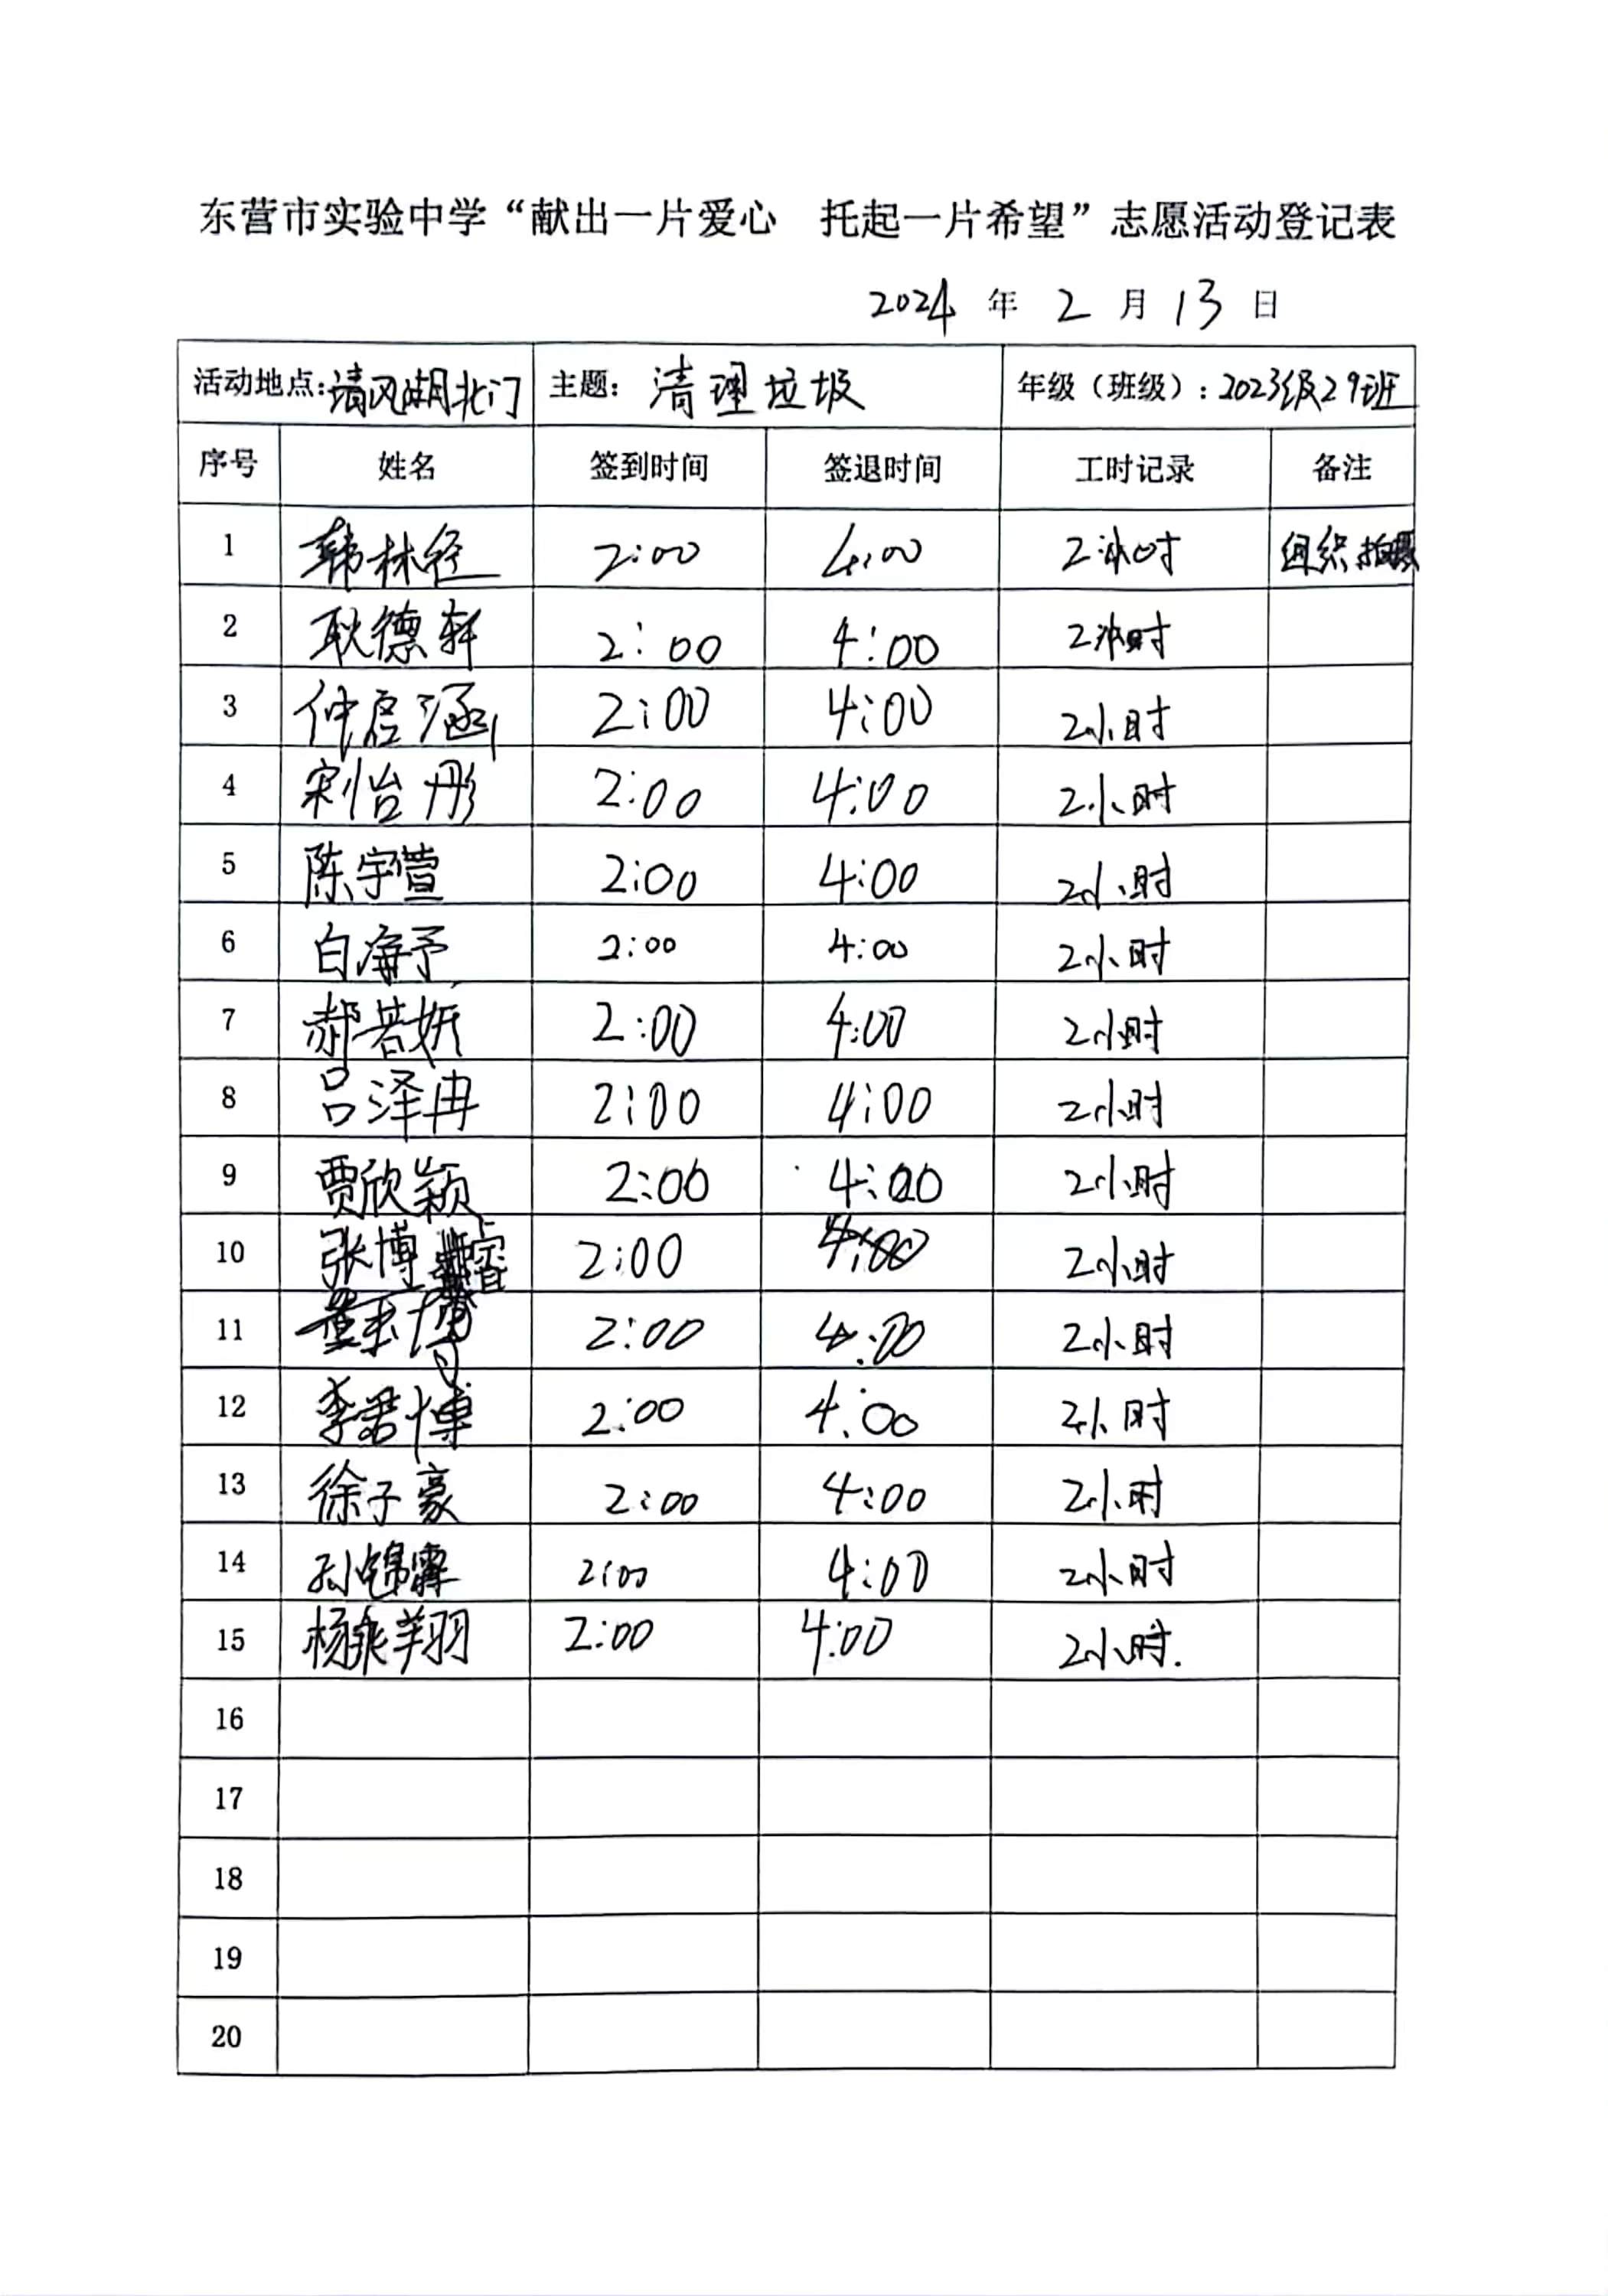 东营市实验中学“献出一片爱心 托起一片希望”志愿活动登记表
2024 年 2 月 13 日
活动地点:清风湖北门 主题: 清理垃圾 年级（班级）: 2023级29班
序号 姓名 签到时间 签退时间 工时记录 备注
1 韩林径 2:00 4:00 2小时 组织拍摄
2 耿德轩 2:00 4:00 2小时
3 仲启涵 2:00 4:00 2小时
4 刘怡彤 2:00 4:00 2小时
5 陈宇萱 2:00 4:00 2小时
6 白海予 2:00 4:00 2小时
7 郝若妍 2:00 4:00 2小时
8 吕泽冉 2:00 4:00 2小时
9 贾欣颖 2:00 4:00 2小时
10 张博睿 2:00 4:00 2小时
11 董 博 2:00 4:00 2小时
12 李君博 2:00 4:00 2小时
13 徐子豪 2:00 4:00 2小时
14 孙锦霖 2:00 4:00 2小时
15 杨 翔 2:00 4:00 2小时.
16
17
18
19
20